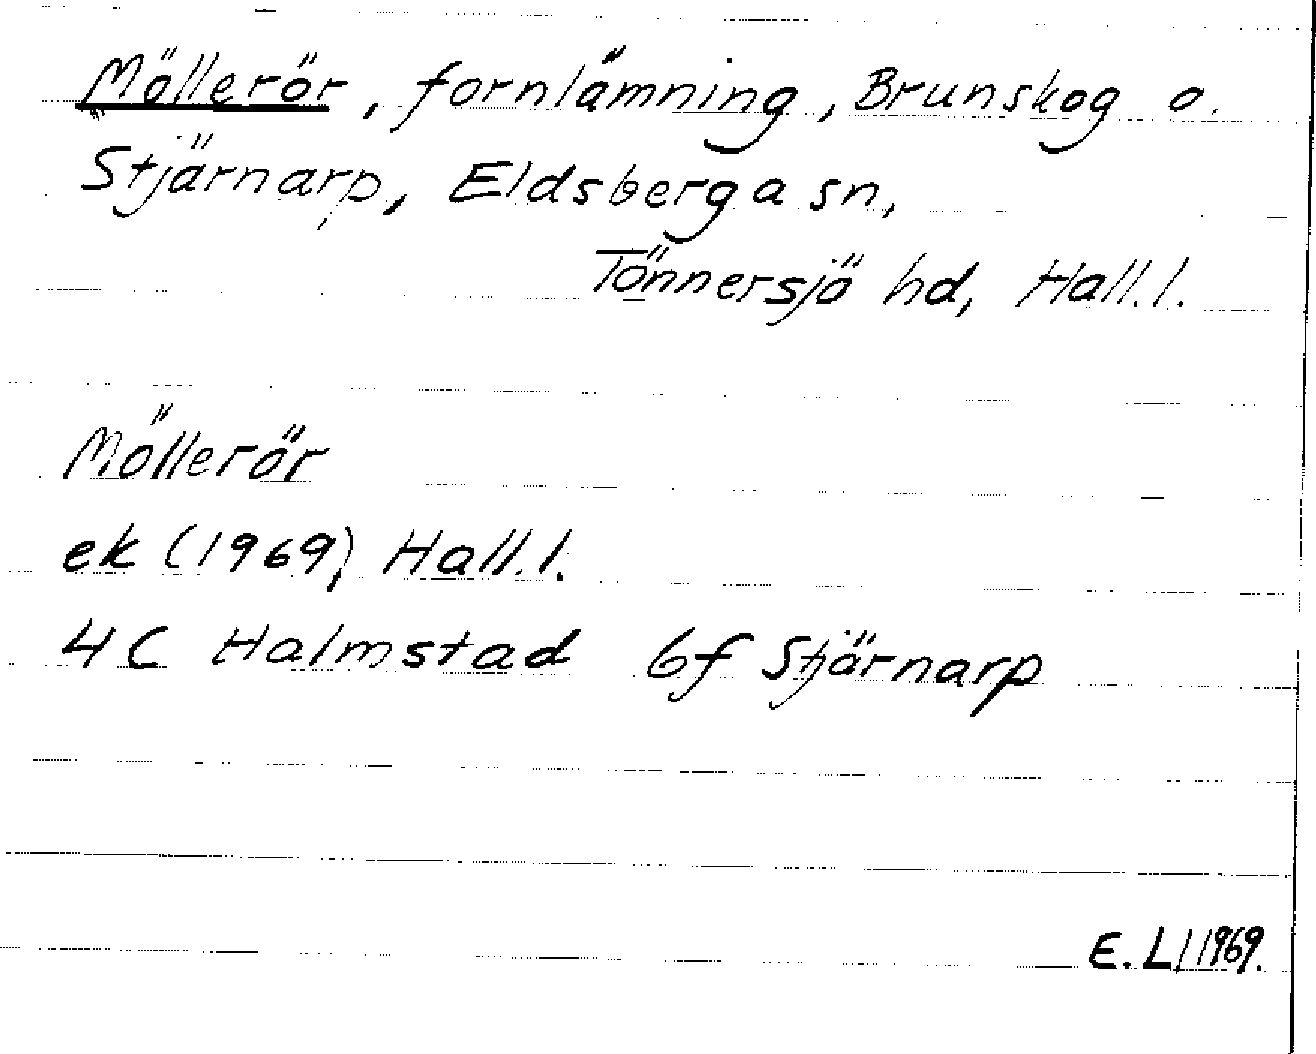 Möllerör, fornlämning, Brunskog o.
Stjärnarp, Eldsberga sn,
Tönnersjö hd, Hall.l.
Möllerör
ek (1969), Hall.l.
4C Halmstad 6f Stjärnarp
E.Ll 1969.